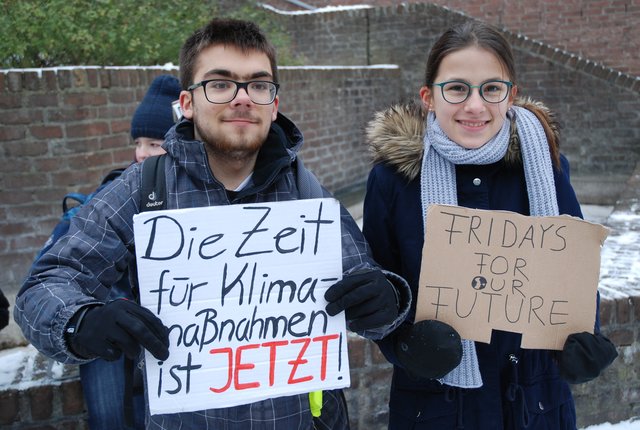 Die Zeit
für Klima-
maßnahmen
ist JETZT!
FRIDAYS
FOR
OUR
FUTURE
deuter